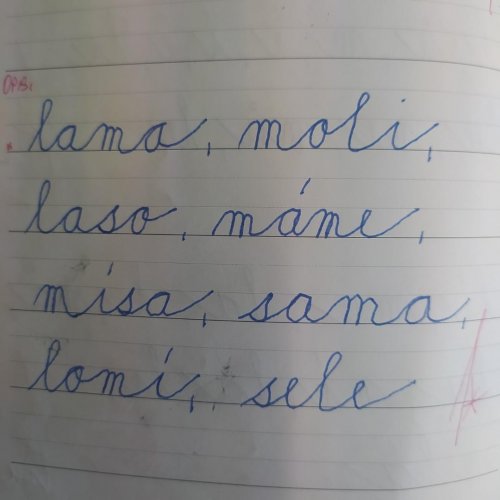 lama, moli,
laso, máme,
mísa, sama,
lomí, sele